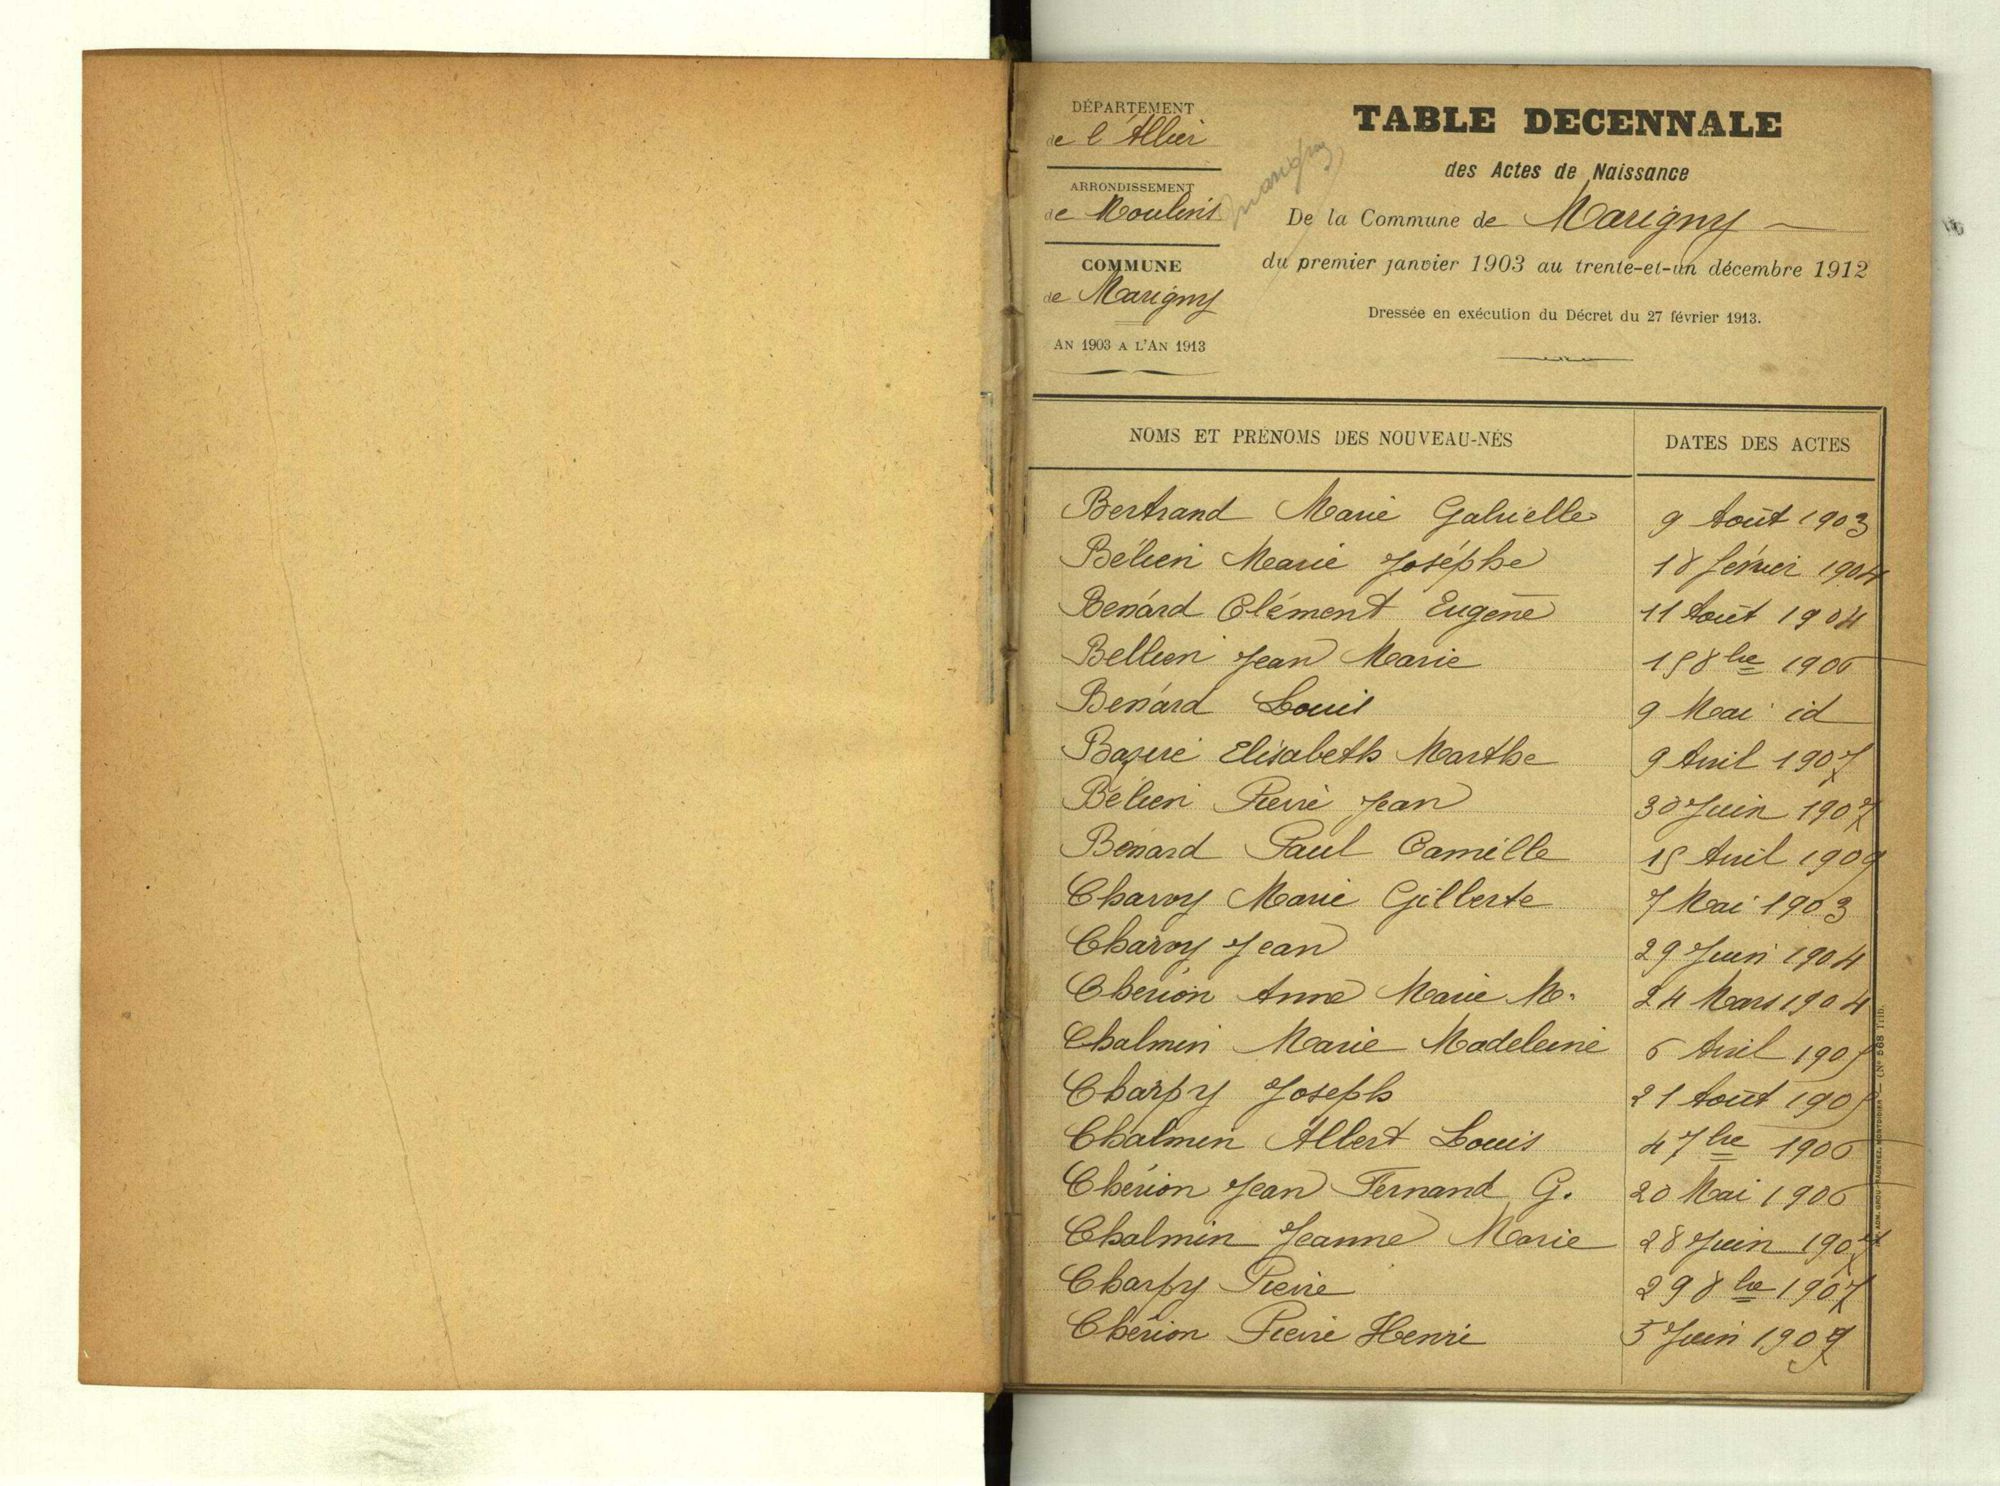 DÉPARTEMENT
de l'Allier
ARRONDISSEMENT
de Moulins
COMMUNE
de Marigny
AN 1903 A L'AN 1913
Marigny
TABLE DECENNALE
des Actes de Naissance
De la Commune de Marigny
du premier janvier 1903 au trente-et-un décembre 1912
Dressée en exécution du Décret du 27 février 1913.
NOMS ET PRÉNOMS DES NOUVEAU-NÉS DATES DES ACTES
Bertrand Marie Gabrielle 9 Août 1903
Bélien Marie Joséphe 18 février 1904
Benárd Clément Eugène 11 Août 1904
Bellien Jean Marie 15 8bre 1906
Benárd Louis 9 Mai id
Elisabeth Marthe 9 Avril 1907
Bélien Pierre Jean 30 Juin 1907
Bénard Paul Camille 15 Avril 1909
Charvy Marie Gilberte 7 Mai 1903
Charvy Jean 29 Juin 1904
Chérion Anne Marie M. 24 Mars 1904
Chalmin Marie Madeleine 6 Avril 1905
Charpy Joseph 21 Août 1905
Chalmin Albert Louis 4 7bre 1906
Chérion Jean Fernand G. 20 Mai 1906
Chalmin Jeanne Marie 28 Juin 1907
Charpy Pierre 29 8bre 1907
Chérion Pierre Henri 5 Juin 1909